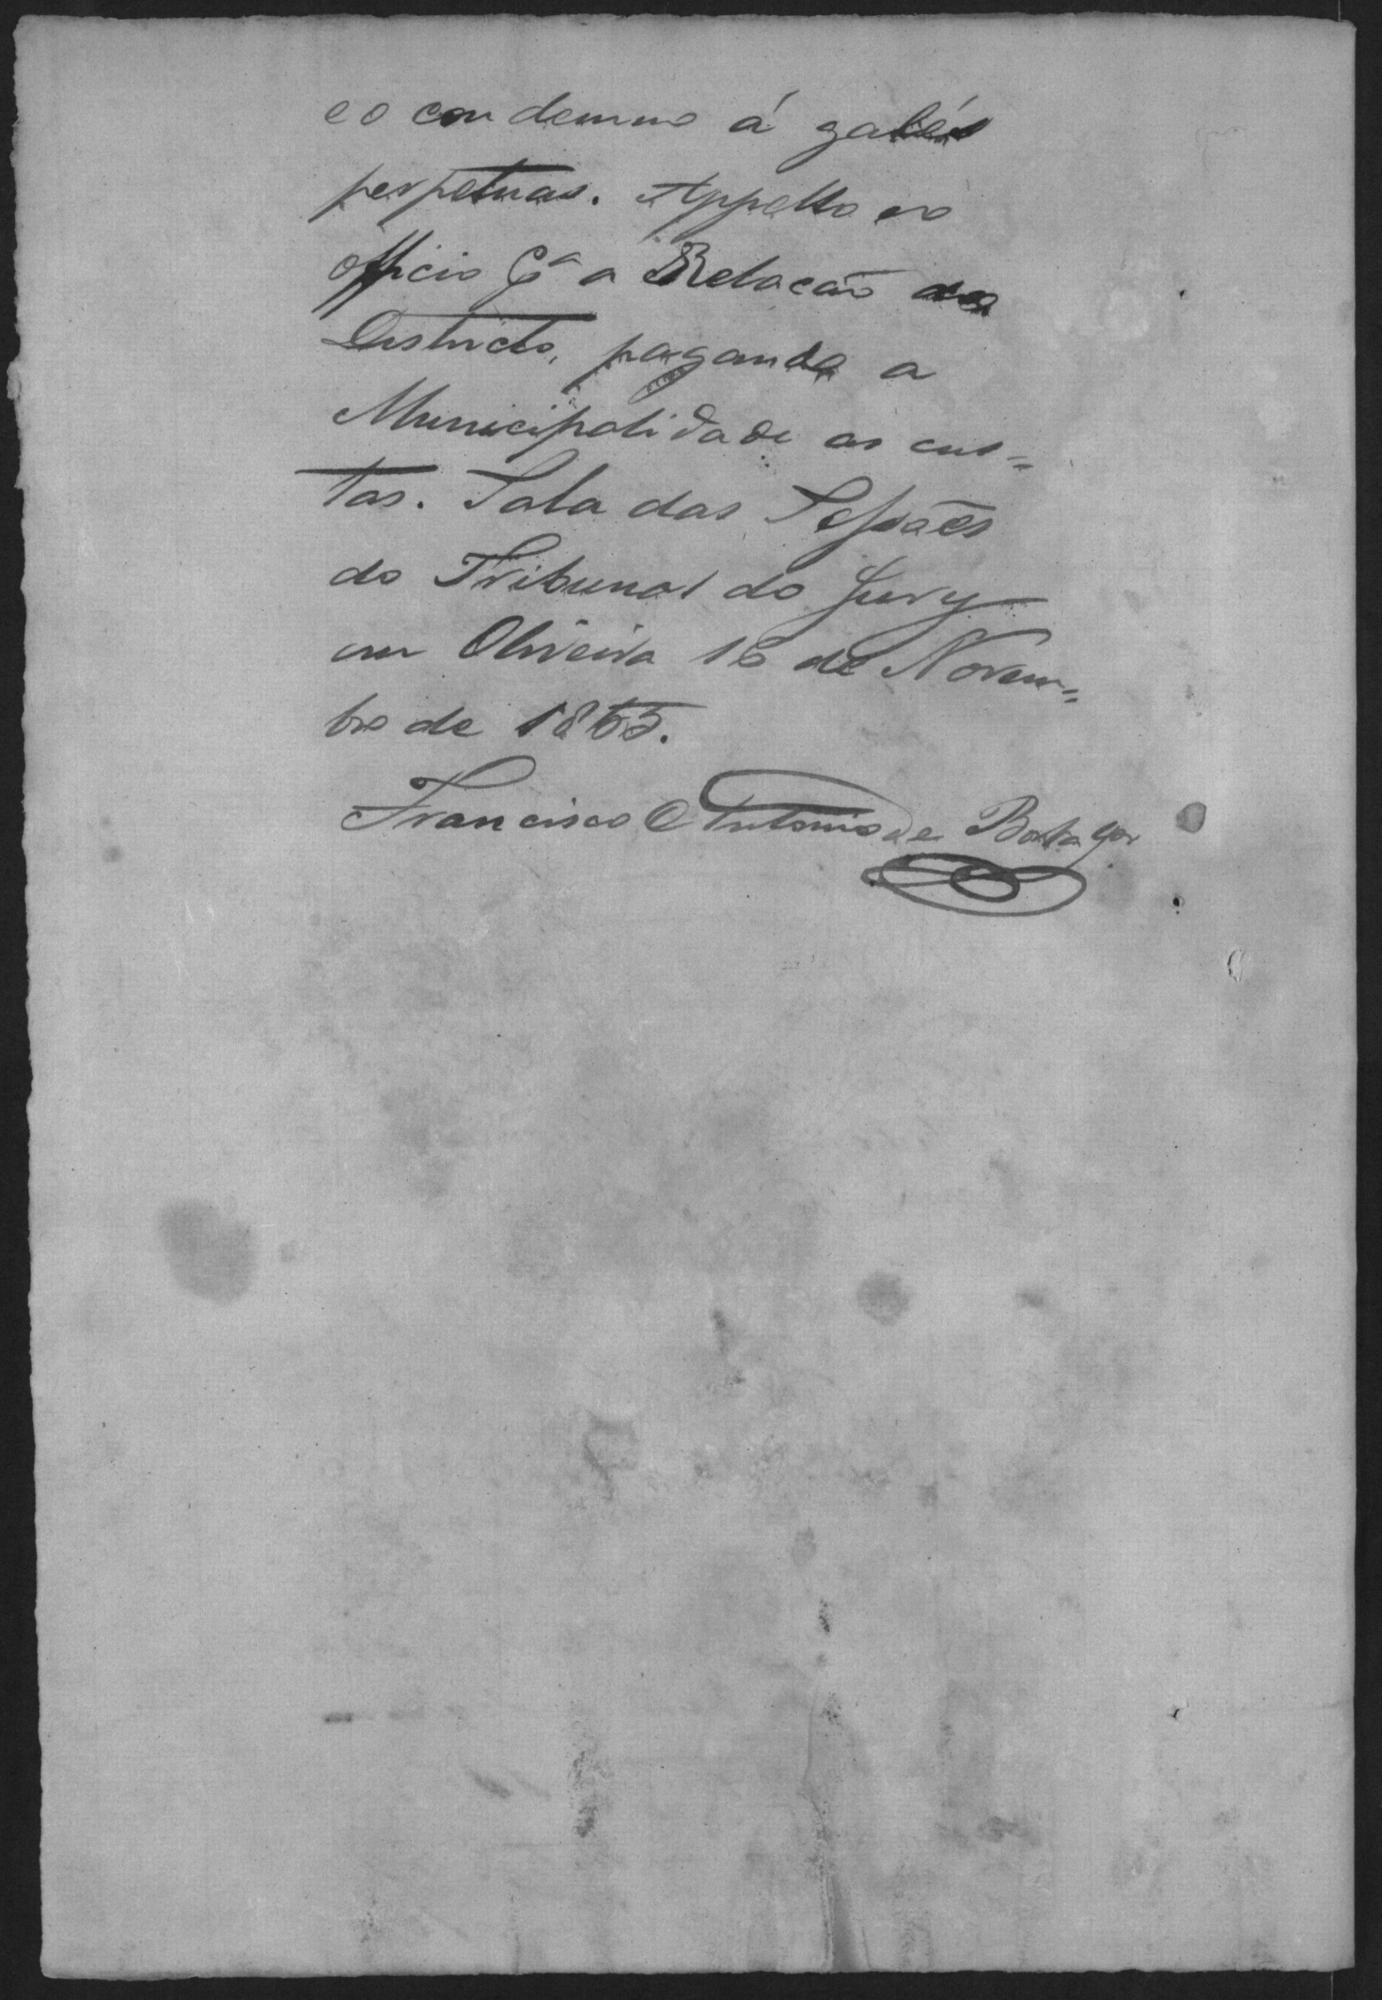 e o condemno á galés
perpetuas. Appello ex
officio pª a Relação do
Districto, pagando a
Municipalidade as cus=
tas. Sala das Sessões
do Tribunal do Jury
em Oliveira 16 de Novem=
bro de 1865.
Francisco Antonio de